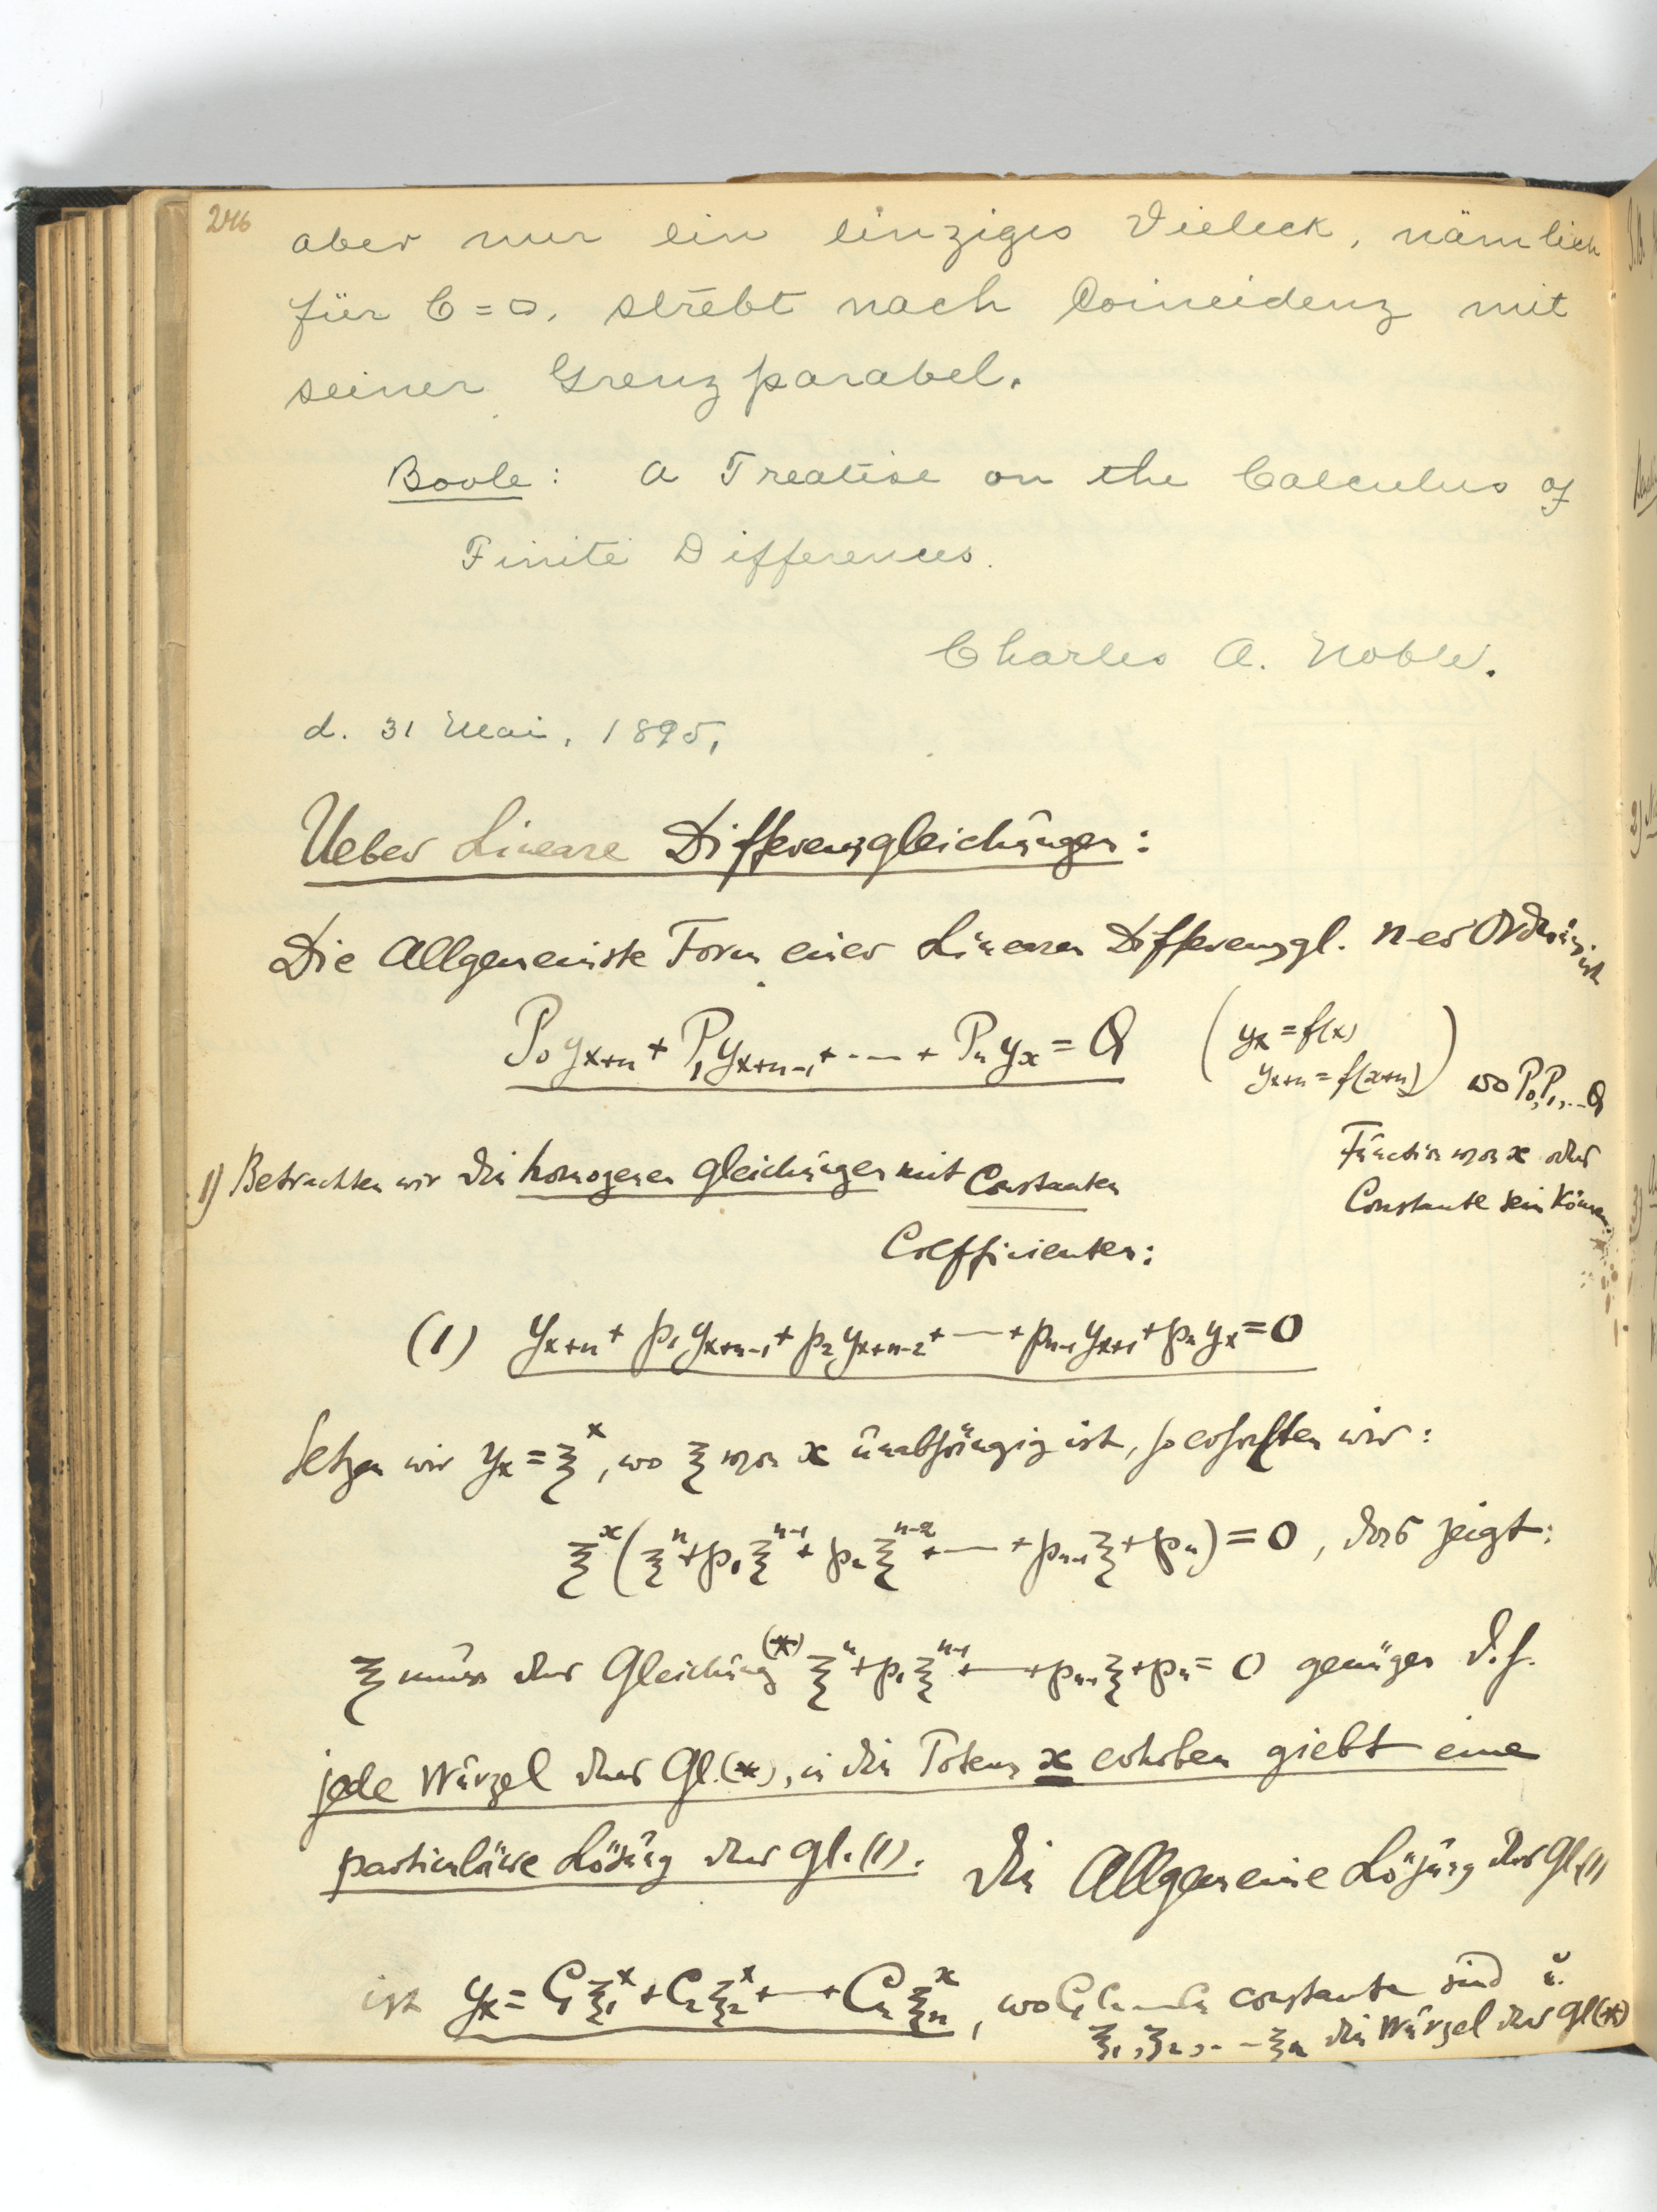 246
aber nur ein einziges Vieleck, nämlich
für C = 0, strebt nach Coincidenz mit
seiner Grenzparabel.
Boole: A Treatise on the Calculus of
Finite Differences.
Charles A. Noble.
d. 31 Mai, 1895,
Ueber Lineare Differenzgleichungen:
Die Allgemeinste Form einer Linearen Differenzgl. n-er Ordnung ist
P₀yₓ₊ₙ + P₁yₓ₊ₙ₋₁ + ··— + Pₙyₓ = Q (yₓ = f(x)
yₓ₊ₙ = f(x+n)) wo P₀, P₁, ... Q
Function von x oder
Constante sein können.
1) Betrachten wir die homogenen Gleichungen mit Constanten
Coefficienten:
(1) yₓ₊ₙ + p₁yₓ₊ₙ₋₁ + p₂yₓ₊ₙ₋₂ + — + pₙ₋₁yₓ₊₁ + pₙyₓ = 0
Setzen wir yₓ = ξˣ, wo ξ von x unabhängig ist, so erhalten wir:
ξˣ(ξⁿ + p₁ξⁿ⁻¹ + p₂ξⁿ⁻² + — + pₙ₋₁ξ + pₙ) = 0, das zeigt:
ξ muss der Gleichung (*) ξⁿ + p₁ξⁿ⁻¹ + — + pₙ₋₁ξ + pₙ = 0 genügen d.h.
jede Wurzel der Gl. (*), in die Potenz x erhoben giebt eine
particuläre Lösung der Gl. (1). Die Allgemeine Lösung der Gl. (1)
ist yₓ = C₁ξ₁ˣ + C₂ξ₂ˣ + — + Cₙξₙˣ, wo C₁ C₂ — Cₙ constante sind u.
ξ₁, ξ₂, . - ξₙ die Wurzel der Gl (*)